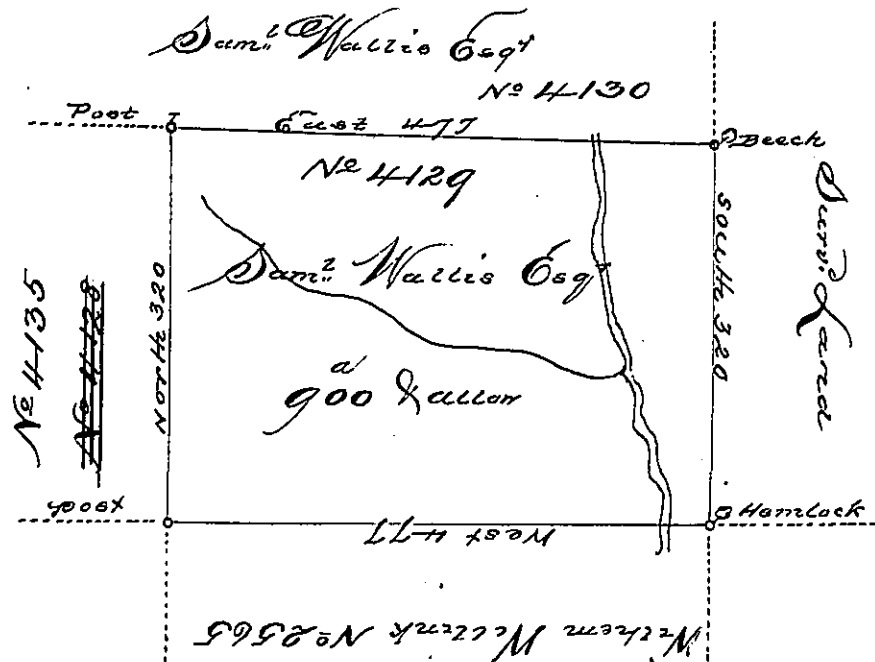 Sam.ˡ Wallis Esqʳ
Nº 4130
Post
East 477
Beech
Nº 4129
Sam.ˡ Wallis Esqʳ
900ᵃ & allow
North 320
South 320
Nº 4135
Nº 4128
Surv.ᵈ Land
post
West 477
Hemlock
Wilhem Willink Nº 2565